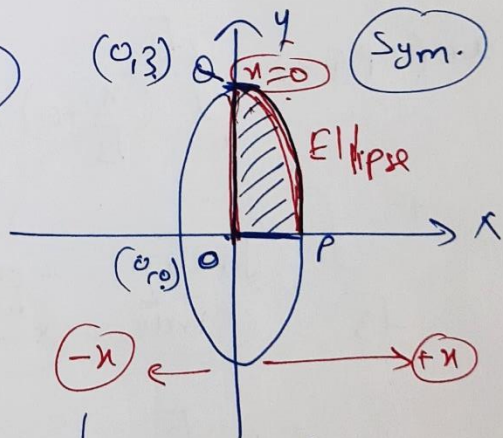 y
(0,3) Q x=0 Sym.
Ellipse
X
(0,0) O P
-x +x